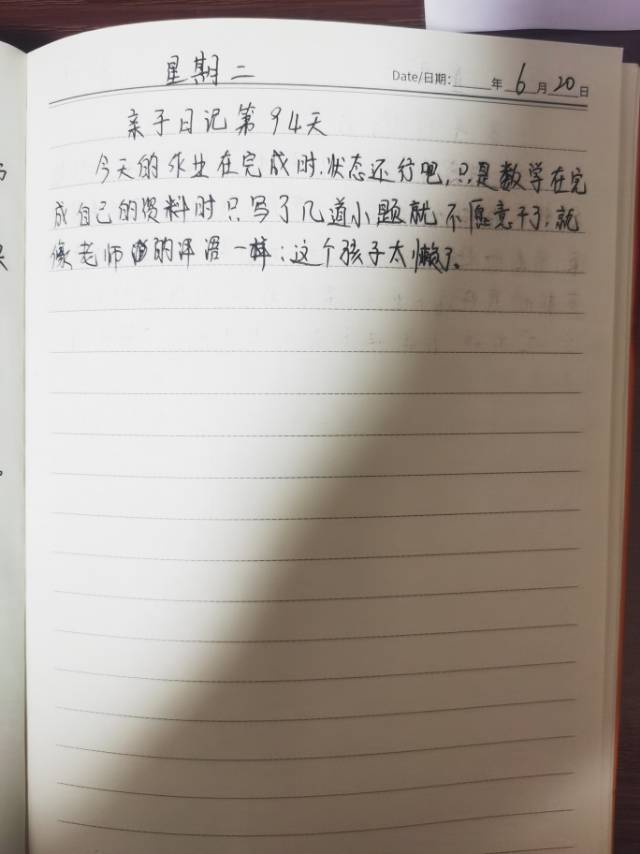 星期二
Date/日期: 年 6 月 20 日
亲子日记第94天
今天的作业在完成时,状态还行吧,只是数学在完
成自己的资料时只写了几道小题就不愿意干了,就
像老师的评语一样:这个孩子太懒了。